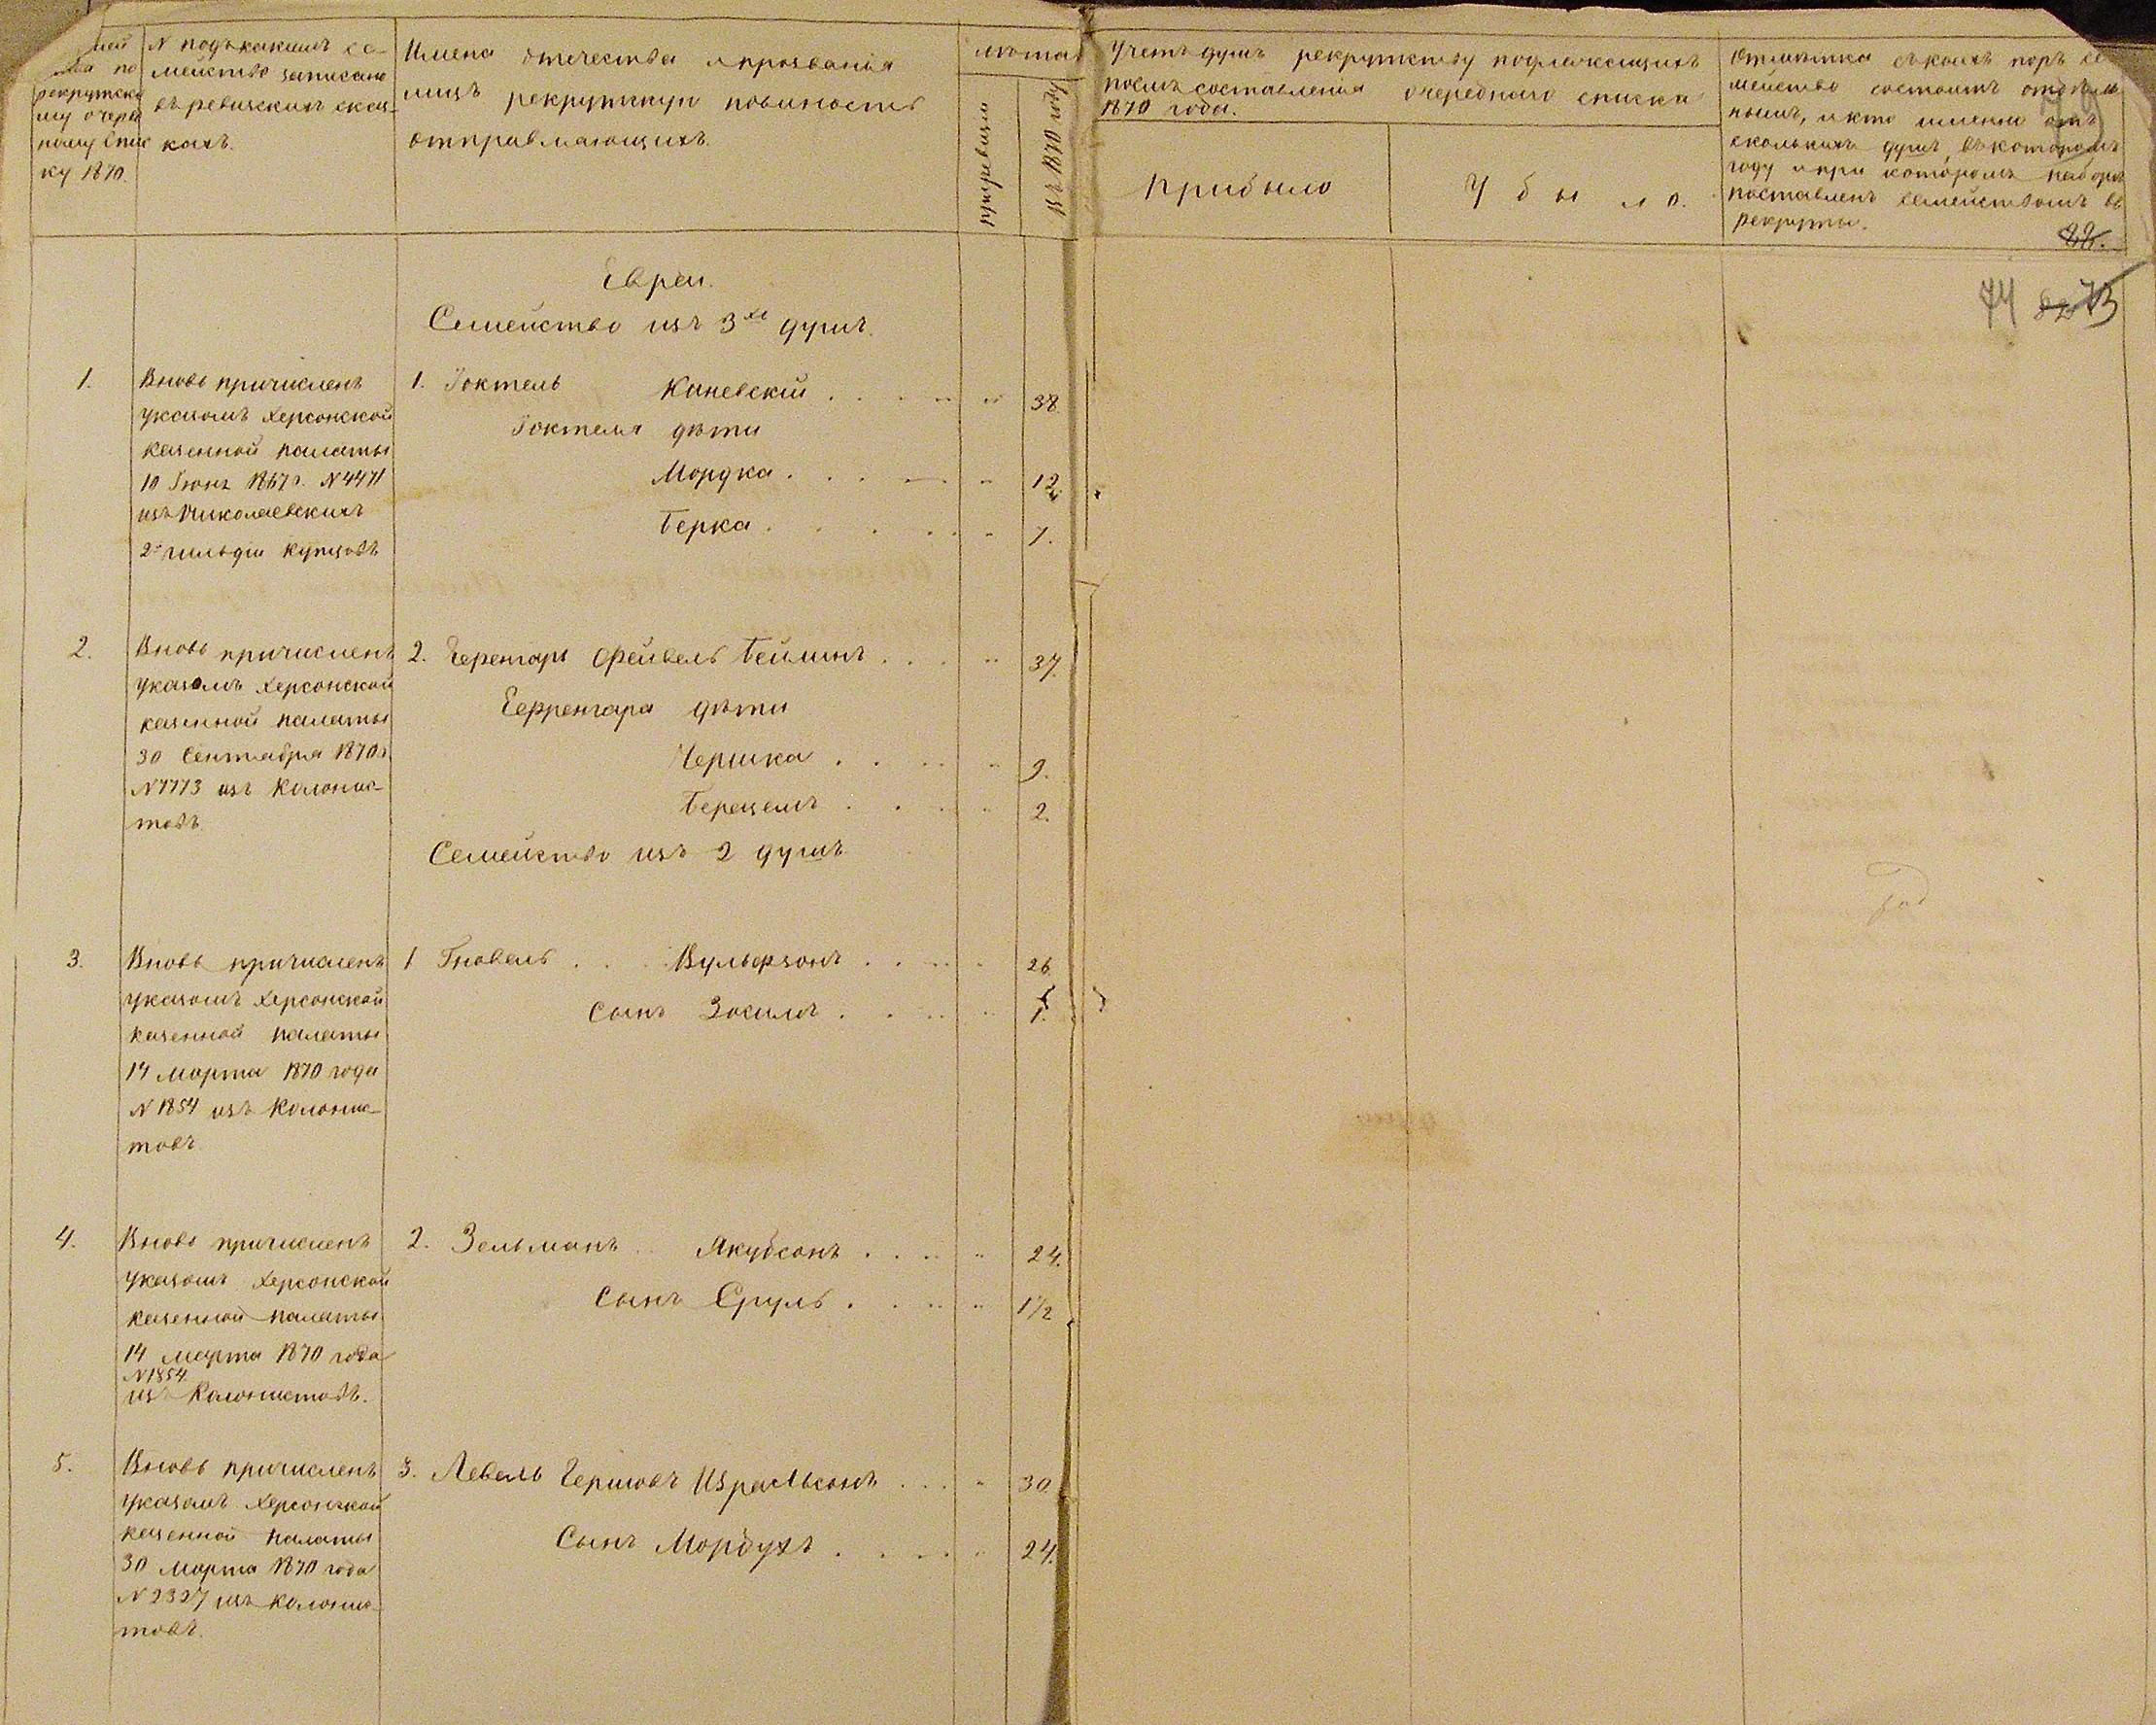 ку 1870.
N подъ какимъ се-
мейство записано
въ ревизскихъ сказ-
кахъ.
Имена отечества и прозванія
лицъ рекрутскую повиность
отправляющихъ.
лѣта
въ 1870 году
Учетъ душъ рекрутству подлежащихъ
послѣ составленія очереднаго списка
1870 года.
Прибыло
Убыло.
Отмѣтка съ коихъ поръ се
мейство состоитъ отдѣль
нымъ, и кто именно отъ
сколькихъ душъ, въ которомъ
году и при которомъ наборѣ
поставленъ семействомъ въ
рекруты.
74
73
Евреи.
Семейство изъ 3хъ душъ.
1.
Вновь причисленъ
указомъ Херсонской
казенной палаты
10 Іюня 1867г. N 4471
изъ Николаевскихъ
2й гильдіи купцовъ
1. Іоктель Каневскій 38
Іоктеля дѣти
Мордка 12
Берка 7.
2.
Вновь причисленъ
указомъ Херсонской
казенной палаты
30 Сентября 1870г.
N 7773 изъ Колонис-
товъ
2. Фейвель Бейлинъ 37.
дѣти
Гершка 9.
2.
Семейство изъ 2 душъ
3.
Вновь причисленъ
указомъ Херсонской
казенной палаты
14 Марта 1870 года
N 1854 изъ Колонис-
товъ
1 Вульфзонъ 26
Сынъ 1.
4.
Вновь причисленъ
указомъ Херсонской
казенной палаты
14 Марта 1870 года
N 1854
изъ Колонистовъ.
2. Зельманъ Якубсонъ 24.
Сынъ Сруль 1 1/2
5.
Вновь причисленъ
указомъ Херсонской
казенной палаты
30 Марта 1870 года
N 2327 изъ Колонис-
товъ.
3. Левель Гершовъ Израельсонъ 30.
Сынъ Мордухъ 24.